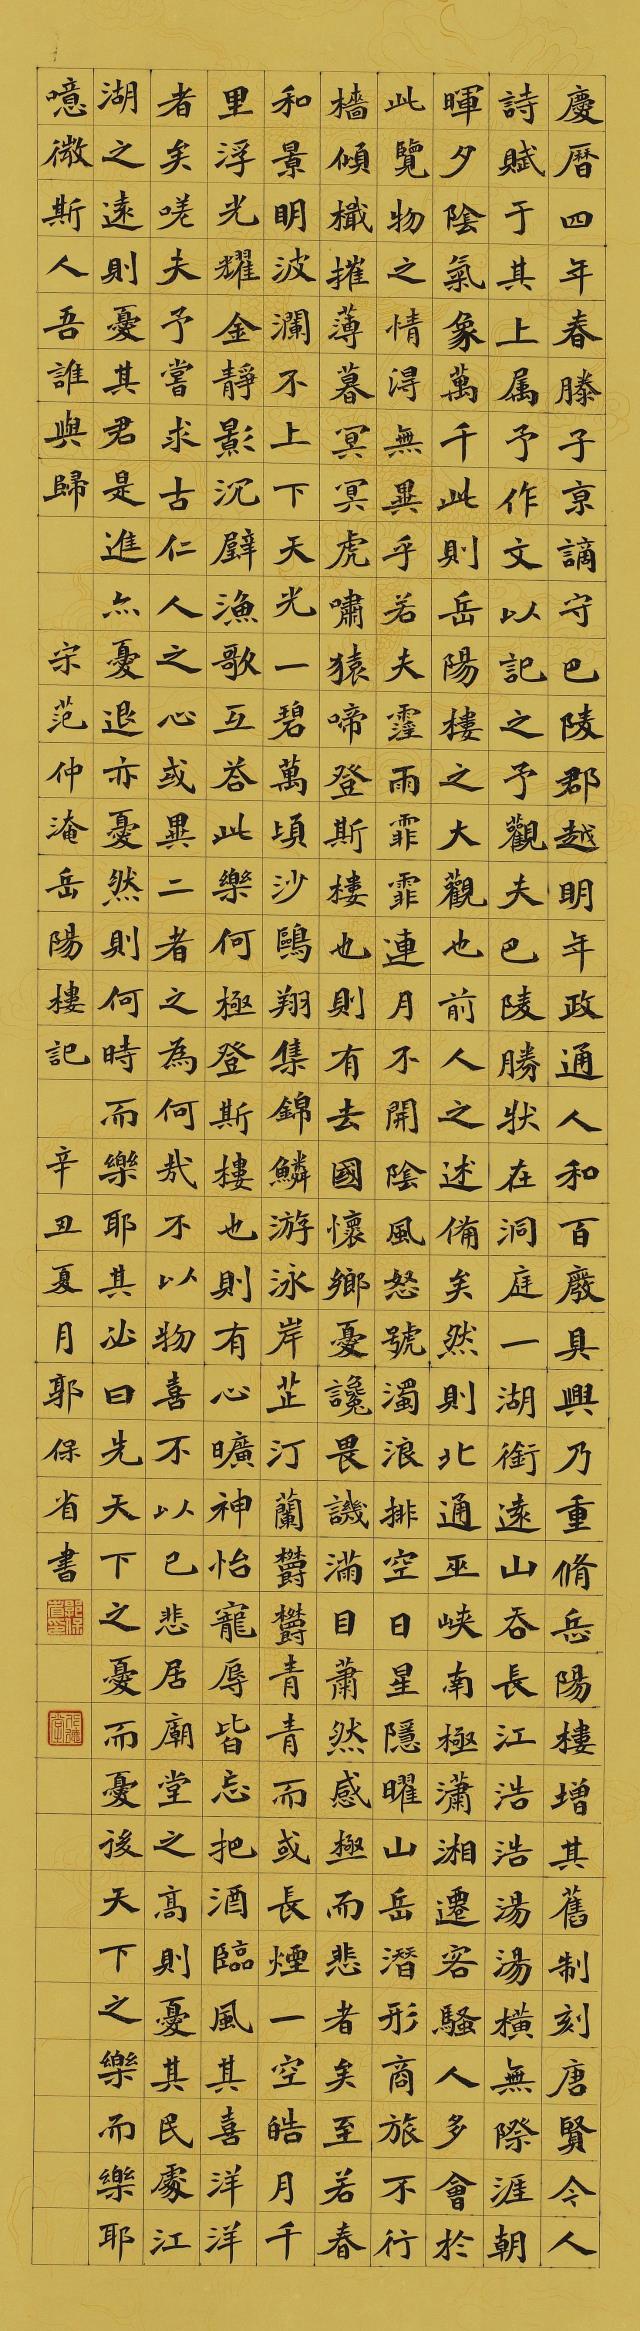 慶曆四年春滕子京謫守巴陵郡越明年政通人和百廢具興乃重脩岳陽樓增其舊制刻唐賢今人
詩賦于其上属予作文以記之予觀夫巴陵勝狀在洞庭一湖銜遠山吞長江浩浩湯湯橫無際涯朝
暉夕陰氣象萬千此則岳陽樓之大觀也前人之述備矣然則北通巫峽南極瀟湘遷客騷人多會於
此覽物之情得無異乎若夫霪雨霏霏連月不開陰風怒號濁浪排空日星隱曜山岳潛形商旅不行
檣傾檝摧薄暮冥冥虎嘯猿啼登斯樓也則有去國懷鄉憂讒畏譏滿目蕭然感極而悲者矣至若春
和景明波瀾不上下天光一碧萬頃沙鷗翔集錦鱗游泳岸芷汀蘭欝欝青青而或長煙一空皓月千
里浮光耀金靜影沉璧漁歌互荅此樂何極登斯樓也則有心曠神怡寵辱皆忘把酒臨風其喜洋洋
者矣嗟夫予嘗求古仁人之心或異二者之為何哉不以物喜不以己悲居廟堂之高則憂其民處江
湖之遠則憂其君是進亦憂退亦憂然則何時而樂耶其必曰先天下之憂而憂後天下之樂而樂耶
噫微斯人吾誰與歸 宋范仲淹岳陽樓記 辛丑夏月郭保省書